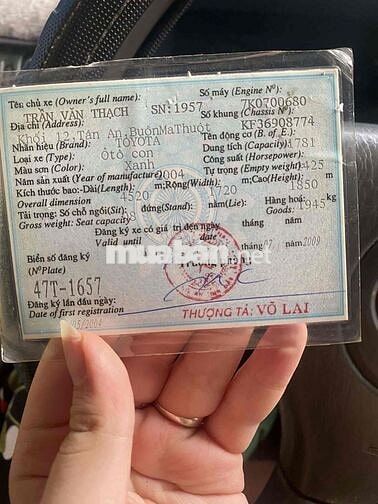 Tên chủ xe (Owner's full name):
TRẦN VĂN THẠCH SN:1957
Số máy (Engine Nº):
7K0700680
Địa chỉ (Address):
Khối 12 Tân An, BuônMaThuột
Số khung (Chassis Nº)
KF36908774
Nhãn hiệu (Brand): TOYOTA
Tên động cơ (B. of E.):
Loại xe (Type): Ôtô con
Dung tích (Capacity): 1781
Màu sơn (Color): Xanh
Công suất (Horsepower):
Năm sản xuất (Year of manufacture) 2004
Tự trọng (Empty weight): 1425
Kích thước bao: Dài(Length) m; Rộng(Width) m; Cao(Height) m
Overall dimension 4520 1720 1850
Tải trọng: Số chỗ ngồi(Sir): đứng(Stand): nằm(Lie): Hàng hoá:
Gross weight: Seat capacity Goods: 1945
Đăng ký xe có giá trị đến ngày tháng năm
Valid until date
tháng 07 năm 2009
Biển số đăng ký
(Nº Plate)
47T-1657
muaban.net
Đăng ký lần đầu ngày:
Date of first registration
/05/2004
THƯỢNG TÁ: VÕ LAI